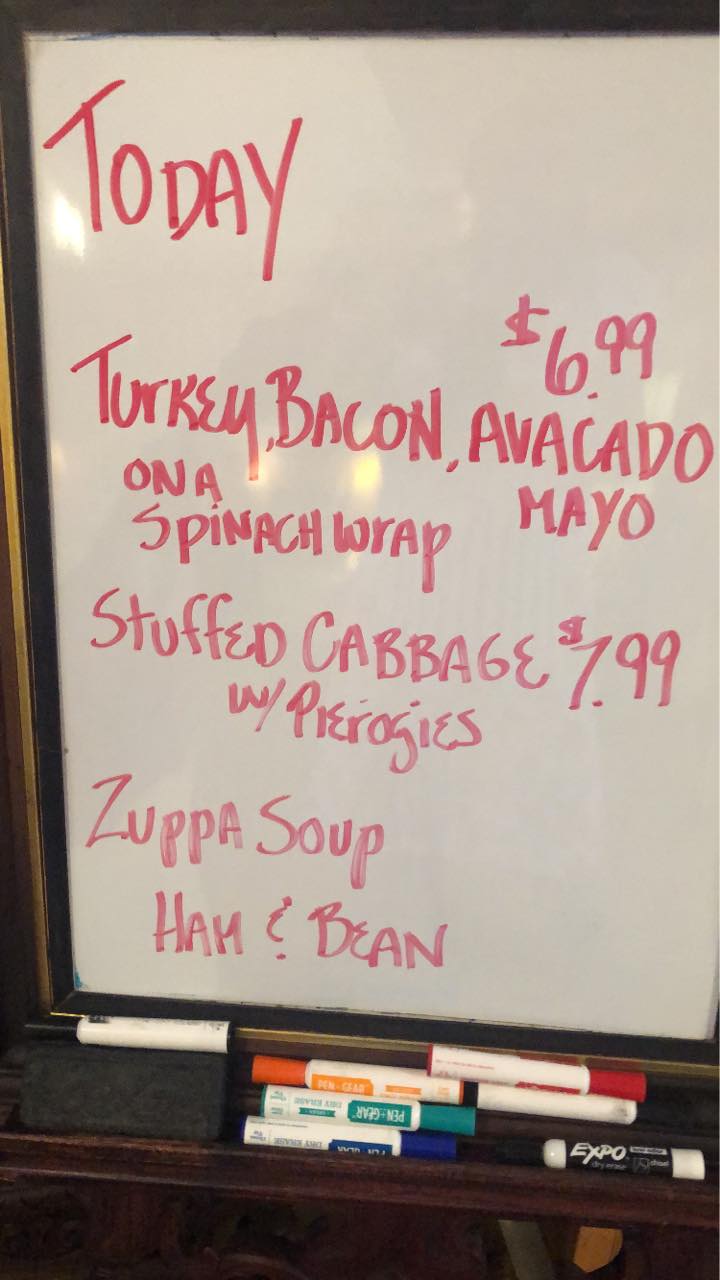 TODAY
$6.99
TURKEY, BACON, AVACADO
ON A
MAYO
SPINACH WRAP
STUFFED CABBAGE $7.99
W/ PIEROGIES
ZUPPA SOUP
HAM & BEAN
PEN+GEAR
DRY ERASE PEN+GEAR
DRY ERASE PEN+GEAR
EXPO
dry erase chisel